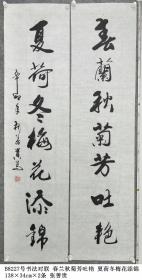 春蘭秋菊芳吐艳
夏荷冬梅花添錦
B8227号书法对联 春兰秋菊芳吐艳 夏荷冬梅花添锦
138×34cm×2条 张善贵